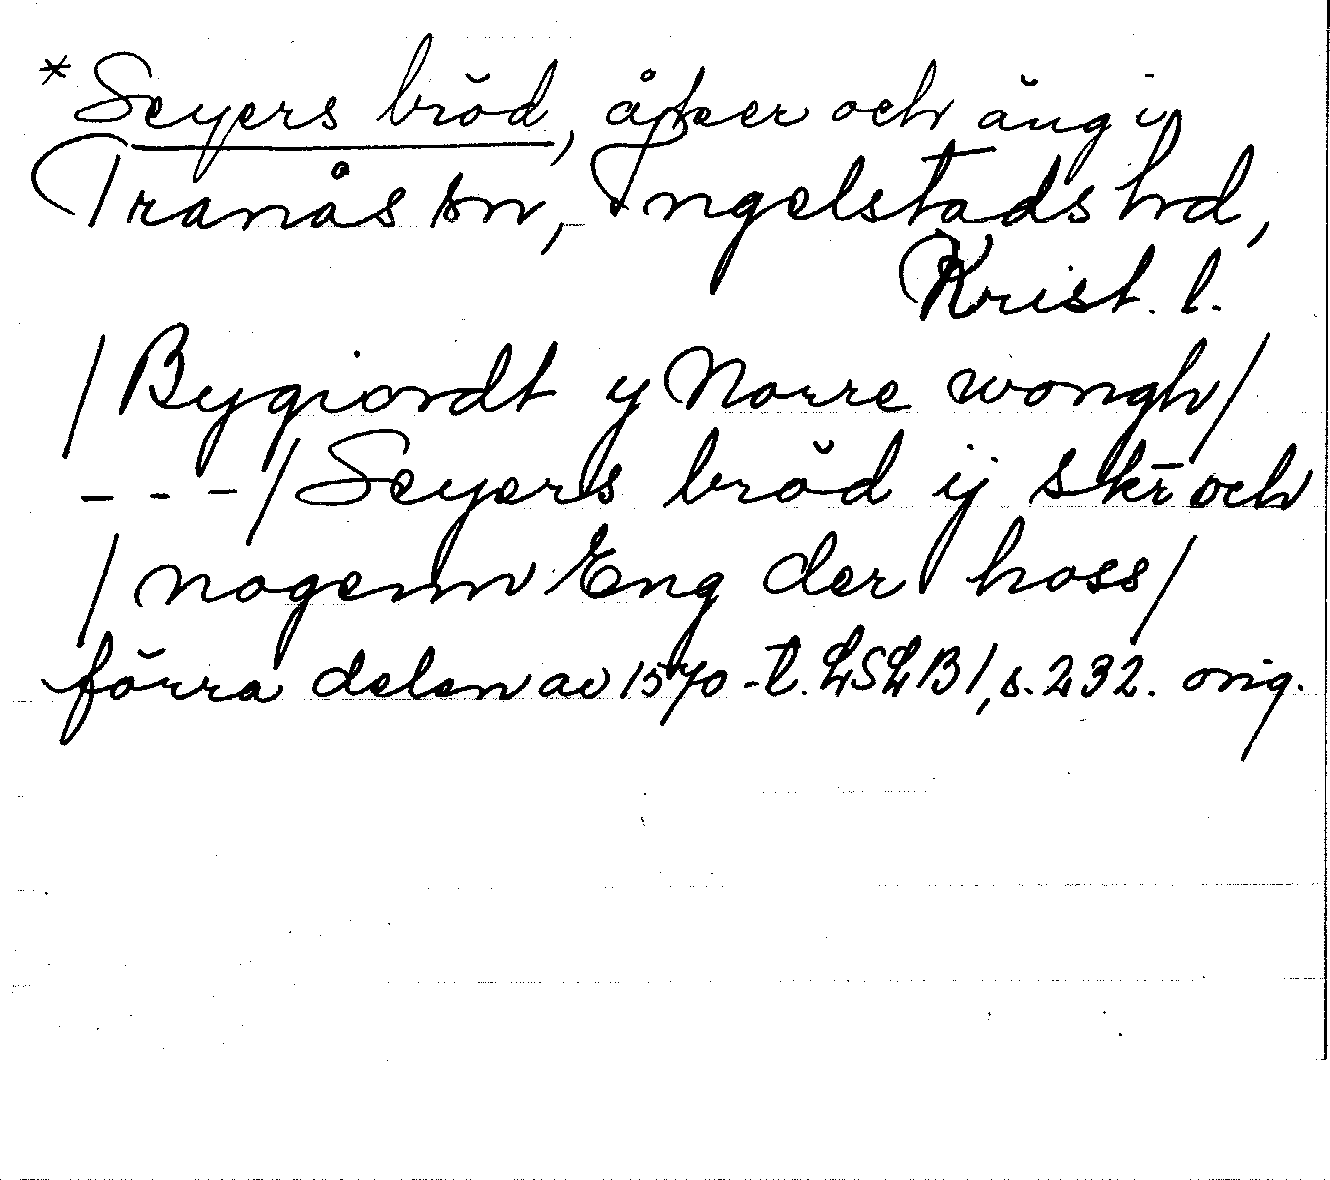 *Seyers bröd, åker och äng i
Tranås sn, Ingelstads hd,
Krist. l.
/Bygiordt y Norre wongh/
---/Seyers bröd ij skr̄ och
/nogenn Eng der hoss/
förra delen av 1570-t. LSLB1, s. 232. orig.